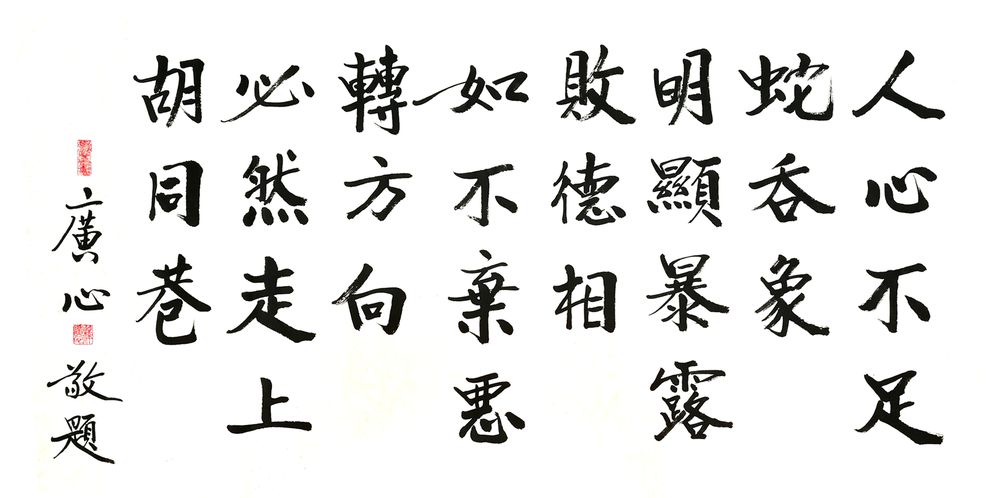 人心不足
蛇吞象
明顯暴露
敗德相
如不棄惡
轉方向
必然走上
胡同巷
廣心敬題